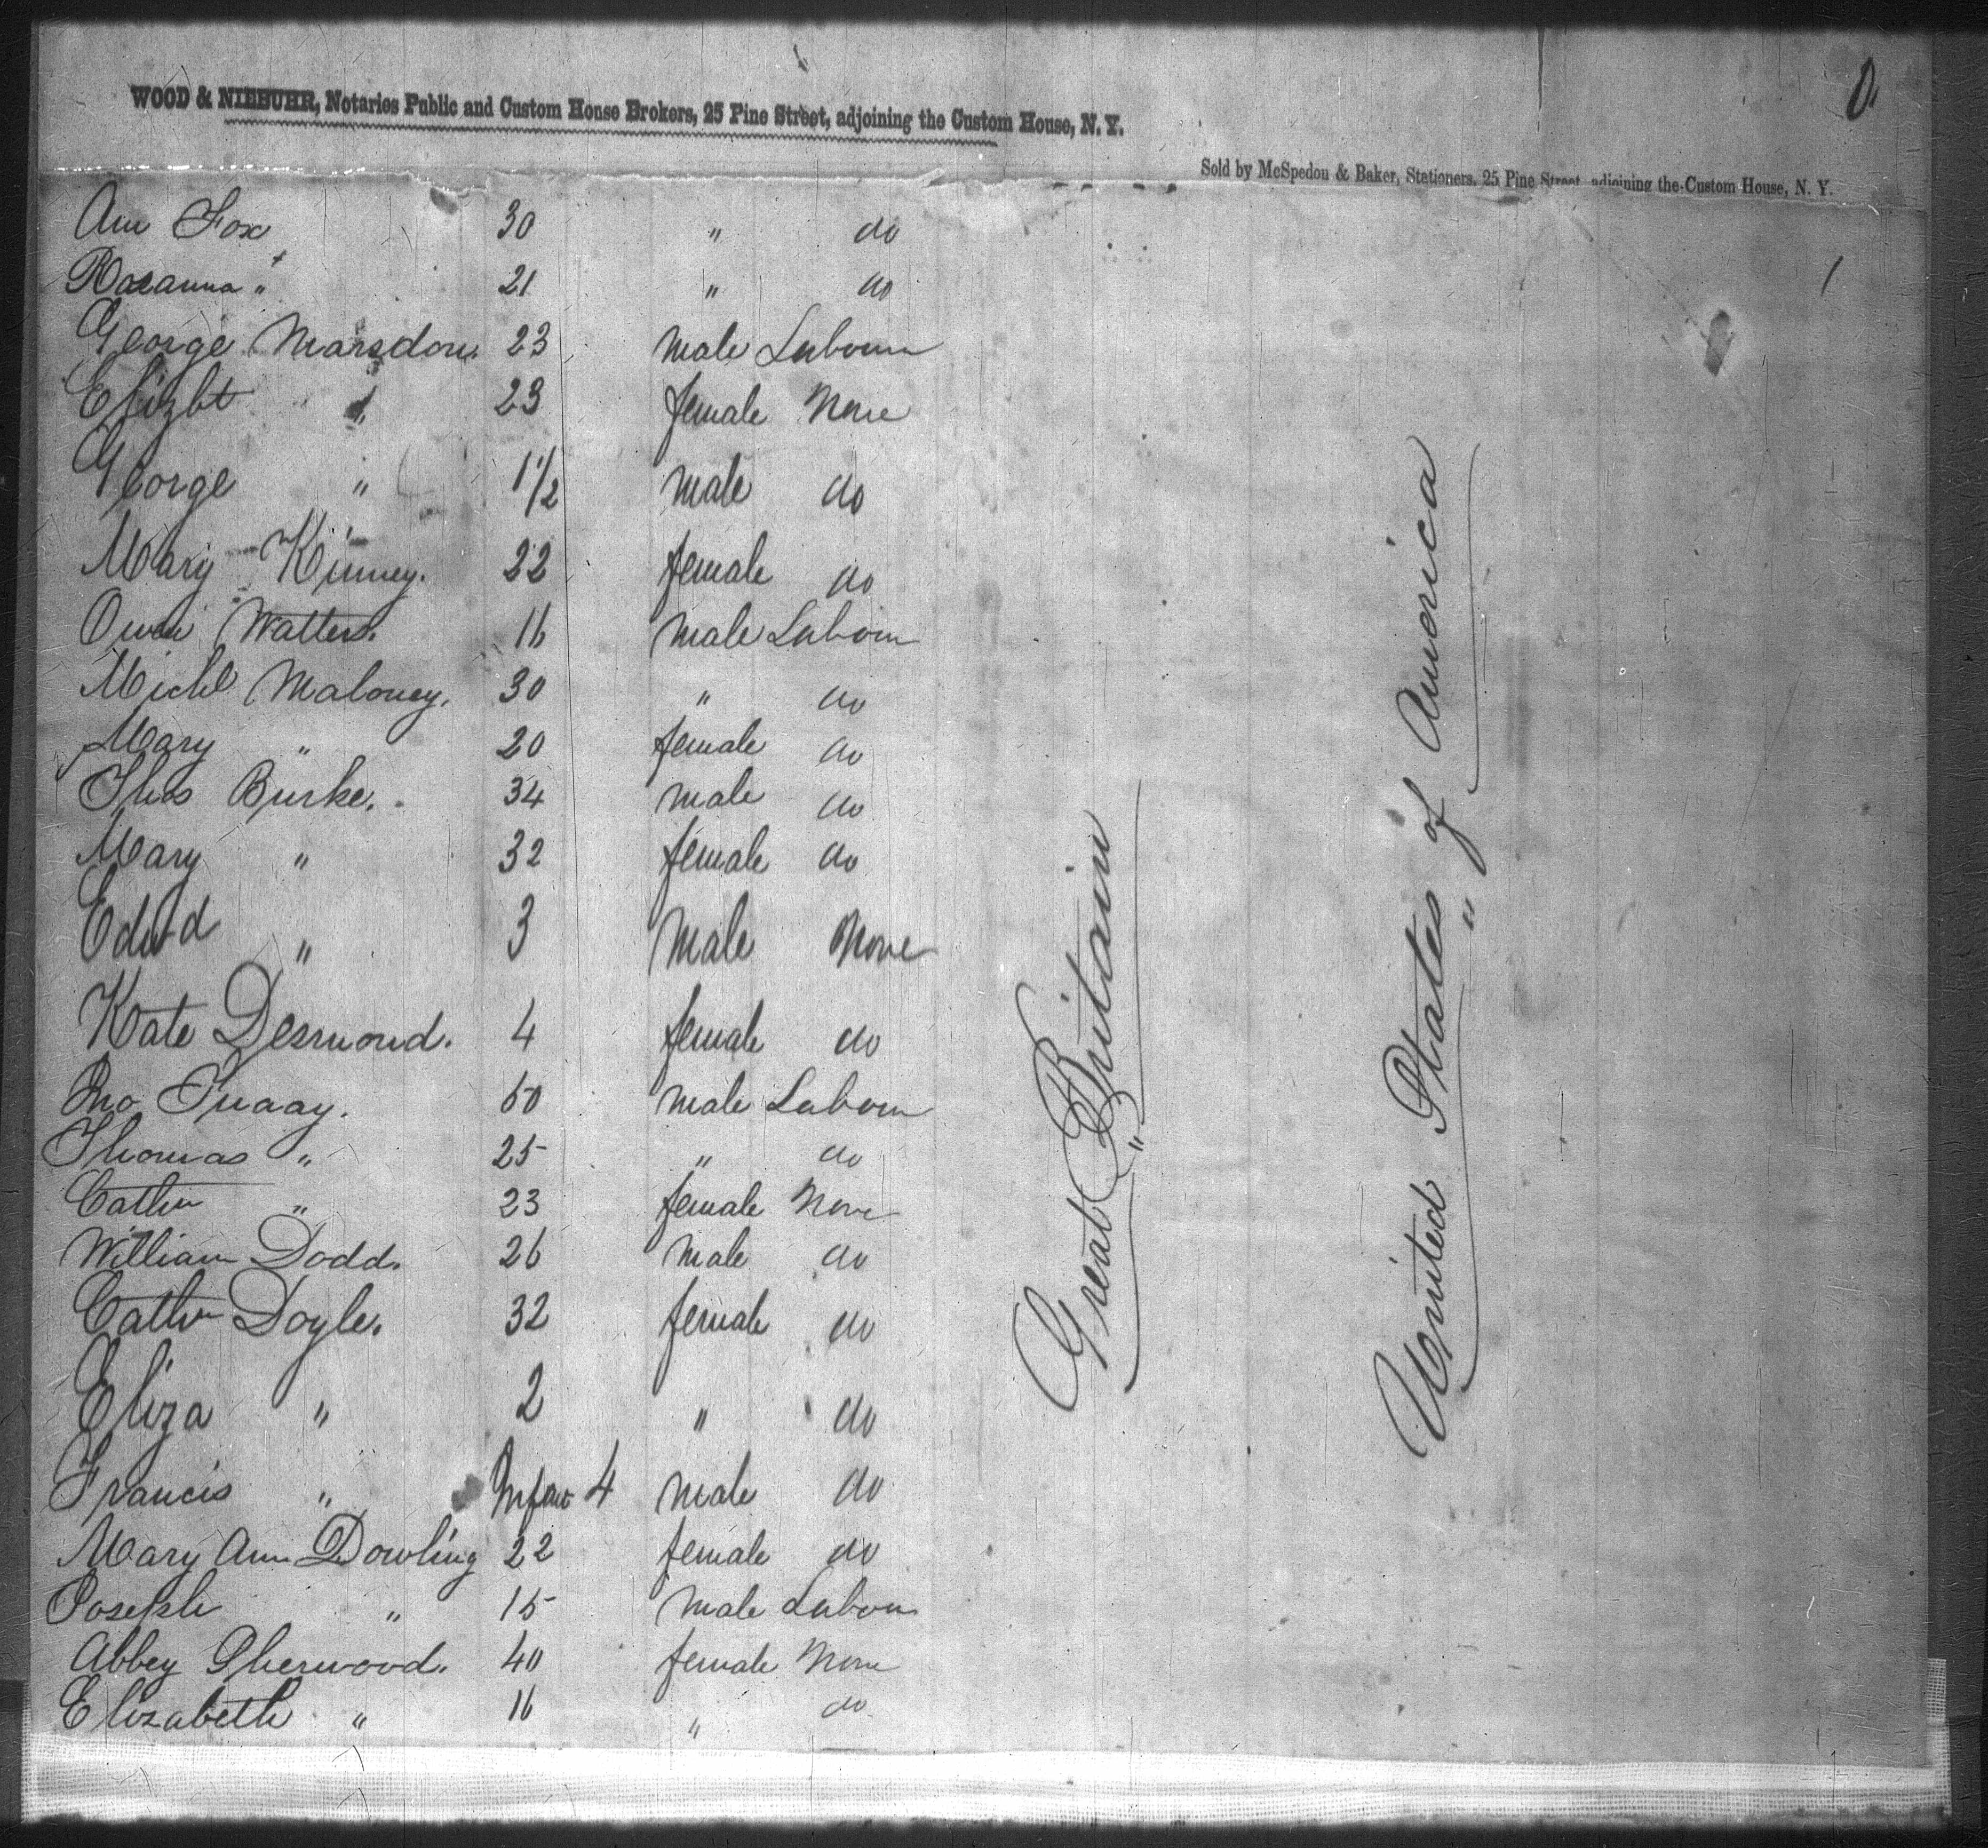 WOOD & NIEBUHR, Notaries Public and Custom House Brokers, 25 Pine Street, adjoining the Custom House, N. Y.
Sold by McSpedon & Baker, Stationers, 25 Pine Street, adjoining the Custom House, N. Y.
Ann Fox 30 " do
Rosanna " 21 " do
George Marsdon. 23 male Labourer
Elizbt " 23 female None
George " 1 1/2 male do
Mary Kinney. 22 female do
Owen Watters. 16 male Labourer
Michl Maloney. 30 " do
Mary " 20 female do
Thos Burke. 34 male do
Mary " 32 female do
Edwd " 3 male None
Kate Desmond. 4 female do
Jno 50 male Labourer
Thomas " 25 " do
Cathn " 23 female None
William Dodd. 26 male do
Cathn Doyle. 32 female do
Eliza " 2 " do
Francis " Infant 4 male do
Mary Ann Dowling 22 female do
Joseph " 15 male Labour
Abbey Sherwood. 40 female None
Elizabeth " 16 " do
Great Britain
"
United States of America
"